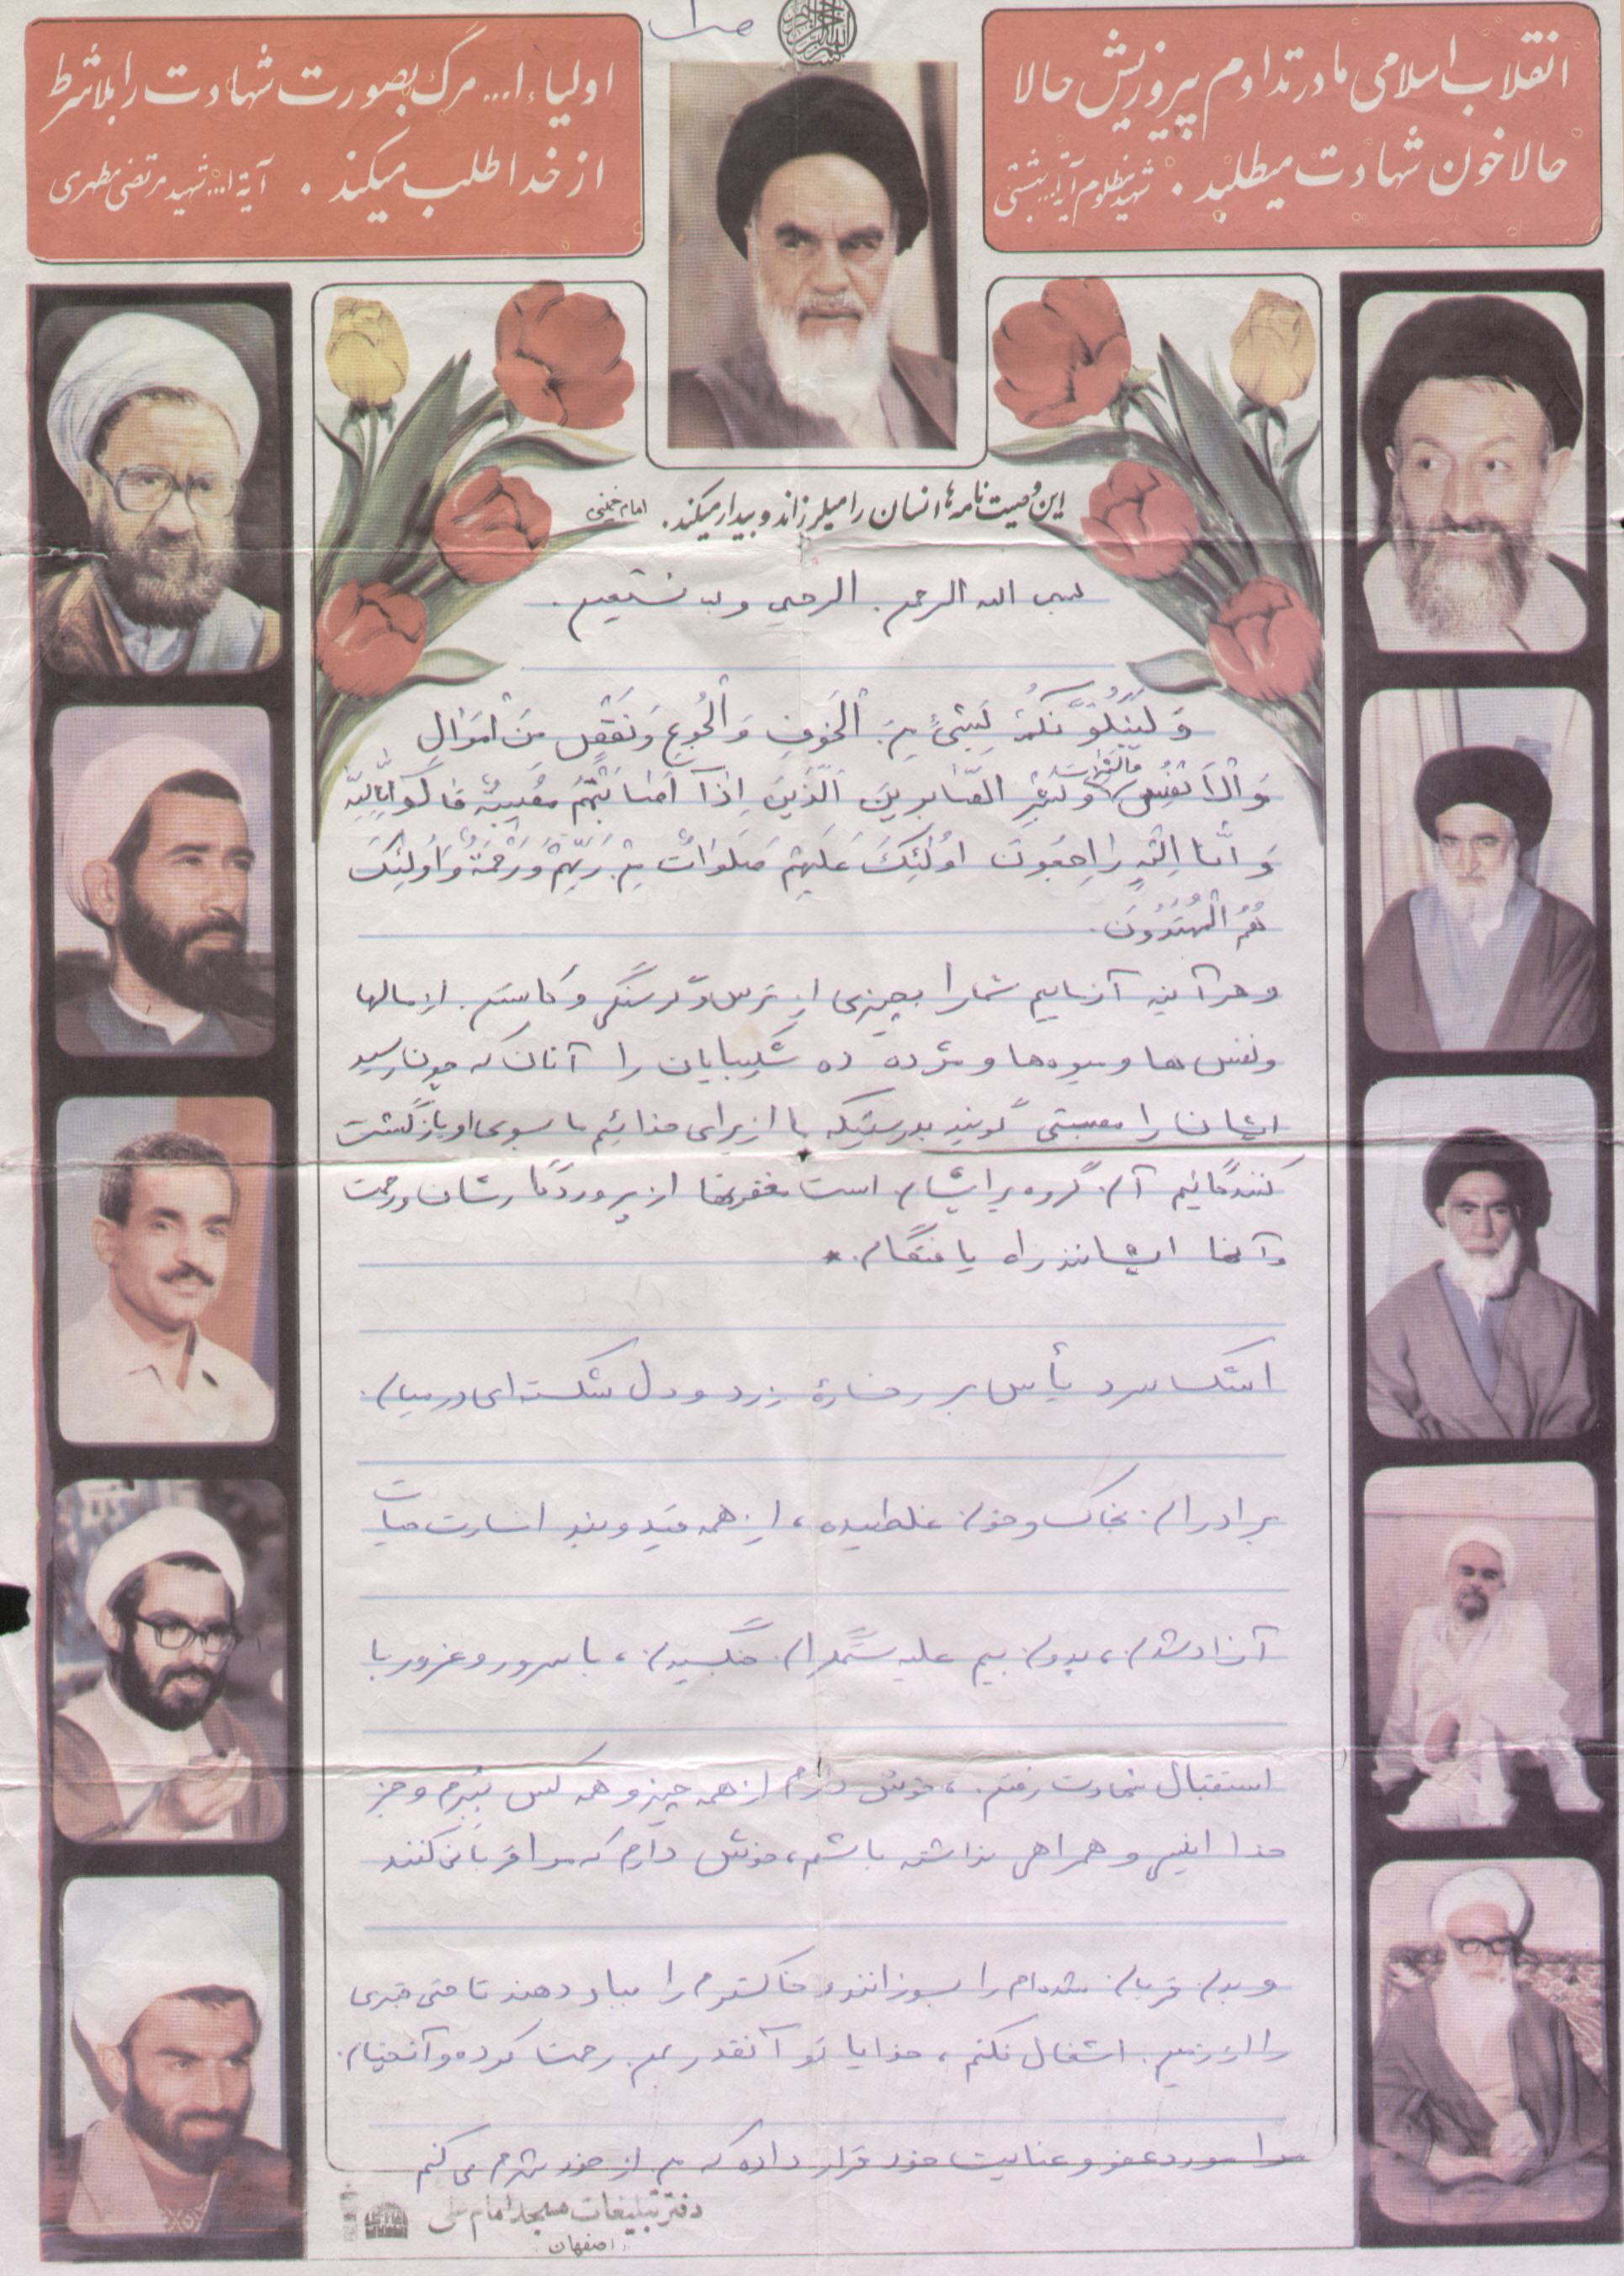 ص ۱
انقلاب اسلامی ما در تداوم پیروزیش حالا
حالا خون شهادت میطلبد. شهید مظلوم آیة ا... بهشتی
اولیاء ا... مرگ بصورت شهادت را بلاشرط
از خدا طلب میکند. آیة ا... شهید مرتضی مطهری
این وصیت نامه ها انسان را میلرزاند و بیدار میکند. امام خمینی
بسم الله الرحمن الرحیم و به نستعین.
وَ لَنَبْلُوَنَّکُمْ بِشَیْءٍ مِنَ الْخَوفِ وَ الْجُوعِ وَ نَقْصٍ مِنَ اَمْوَالِ
وَ الْاَنْفُسِ وَالثَمَراتِ وَ بَشِّرِ الصّابِرینَ اَلَّذینَ اِذآ اَصابَتْهُمْ مُصیبَةٌ قالُوا اِنّا لِلّهِ
وَ اِنّا اِلَیْهِ راجِعُونَ اُولئِکَ عَلَیْهِمْ صَلَواتٌ مِنْ رَبِّهِمْ وَ رَحْمَةٌ وَ اُولئِکَ
هُمُ الْمُهْتَدُونَ.
و هر آینه آزمایم شما را بچیزی از ترس و گرسنگی و کاستن از مالها
و نفس ها و میوه ها و مژده ده شکیبایان را آنان که چون رسید
ایشان را مصیبتی گویند بدرستیکه ما از برای خدائیم ما بسوی او بازگشت
کنندگانیم آن گروه بر ایشان است مغفرتها از پروردگارشان و رحمت
و آنها ایشانند راه یافتگان.*
اشک سرد یأس بر رخسارهٔ زرد و دل شکسته ای در میان
برادران بخاک و خون غلطیده، از همه قید و بند اسارت حیات
آزاد شدن، بدون بیم علیه ستمگران جنگیدن، با سرور و غرور با
استقبال شهادت رفتن، خوش دارم از همه چیز و همه کس ببرم و جز
خدا انیس و همراهی نداشته باشم، خوش دارم که مرا قربانی کنند
و بدن قربان شده ام را بسوزانند و خاکسترم را بباد دهند تا حتی قبری
را از زمین اشغال نکنم، خدایا تو آنقدر بمن رحمت کرده و آنچنان
مرا مورد عفو و عنایت خود قرار داده که من از خود شرم می کنم
دفتر تبلیغات مسجد امام علی
اصفهان